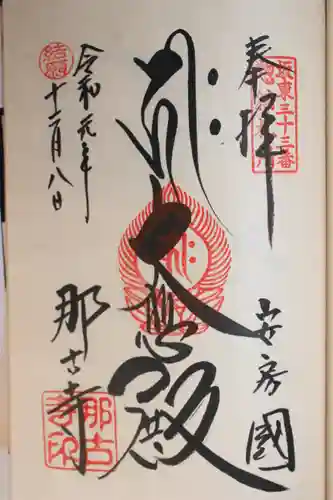 奉拝
坂東三十三番
安房國
大悲殿
那古寺
令和元年
十二月八日
結願
那古寺印